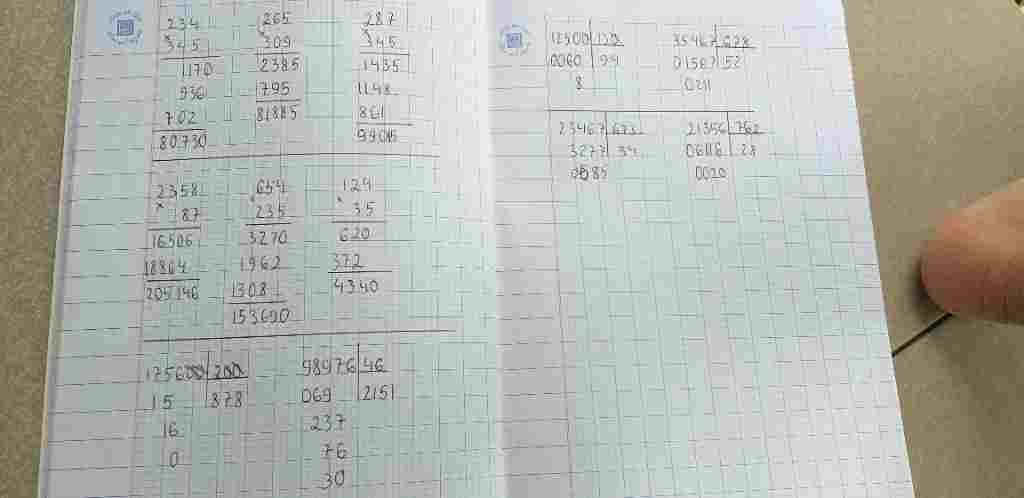 234
×
345
1170
936
702
80.730
265
×
309
2385
795
81885
287
×
345
1435
1148
861
99015
2358
×
87
16506
18864
205146
654
×
235
3270
1962
1308
153690
124
×
35
620
372
4340
175600 200
15 878
16
0
98976 46
069 2151
237
76
30
35467 678
01567 52
0211
23467 673
3277 34
0585
21356 762
06116 28
0020